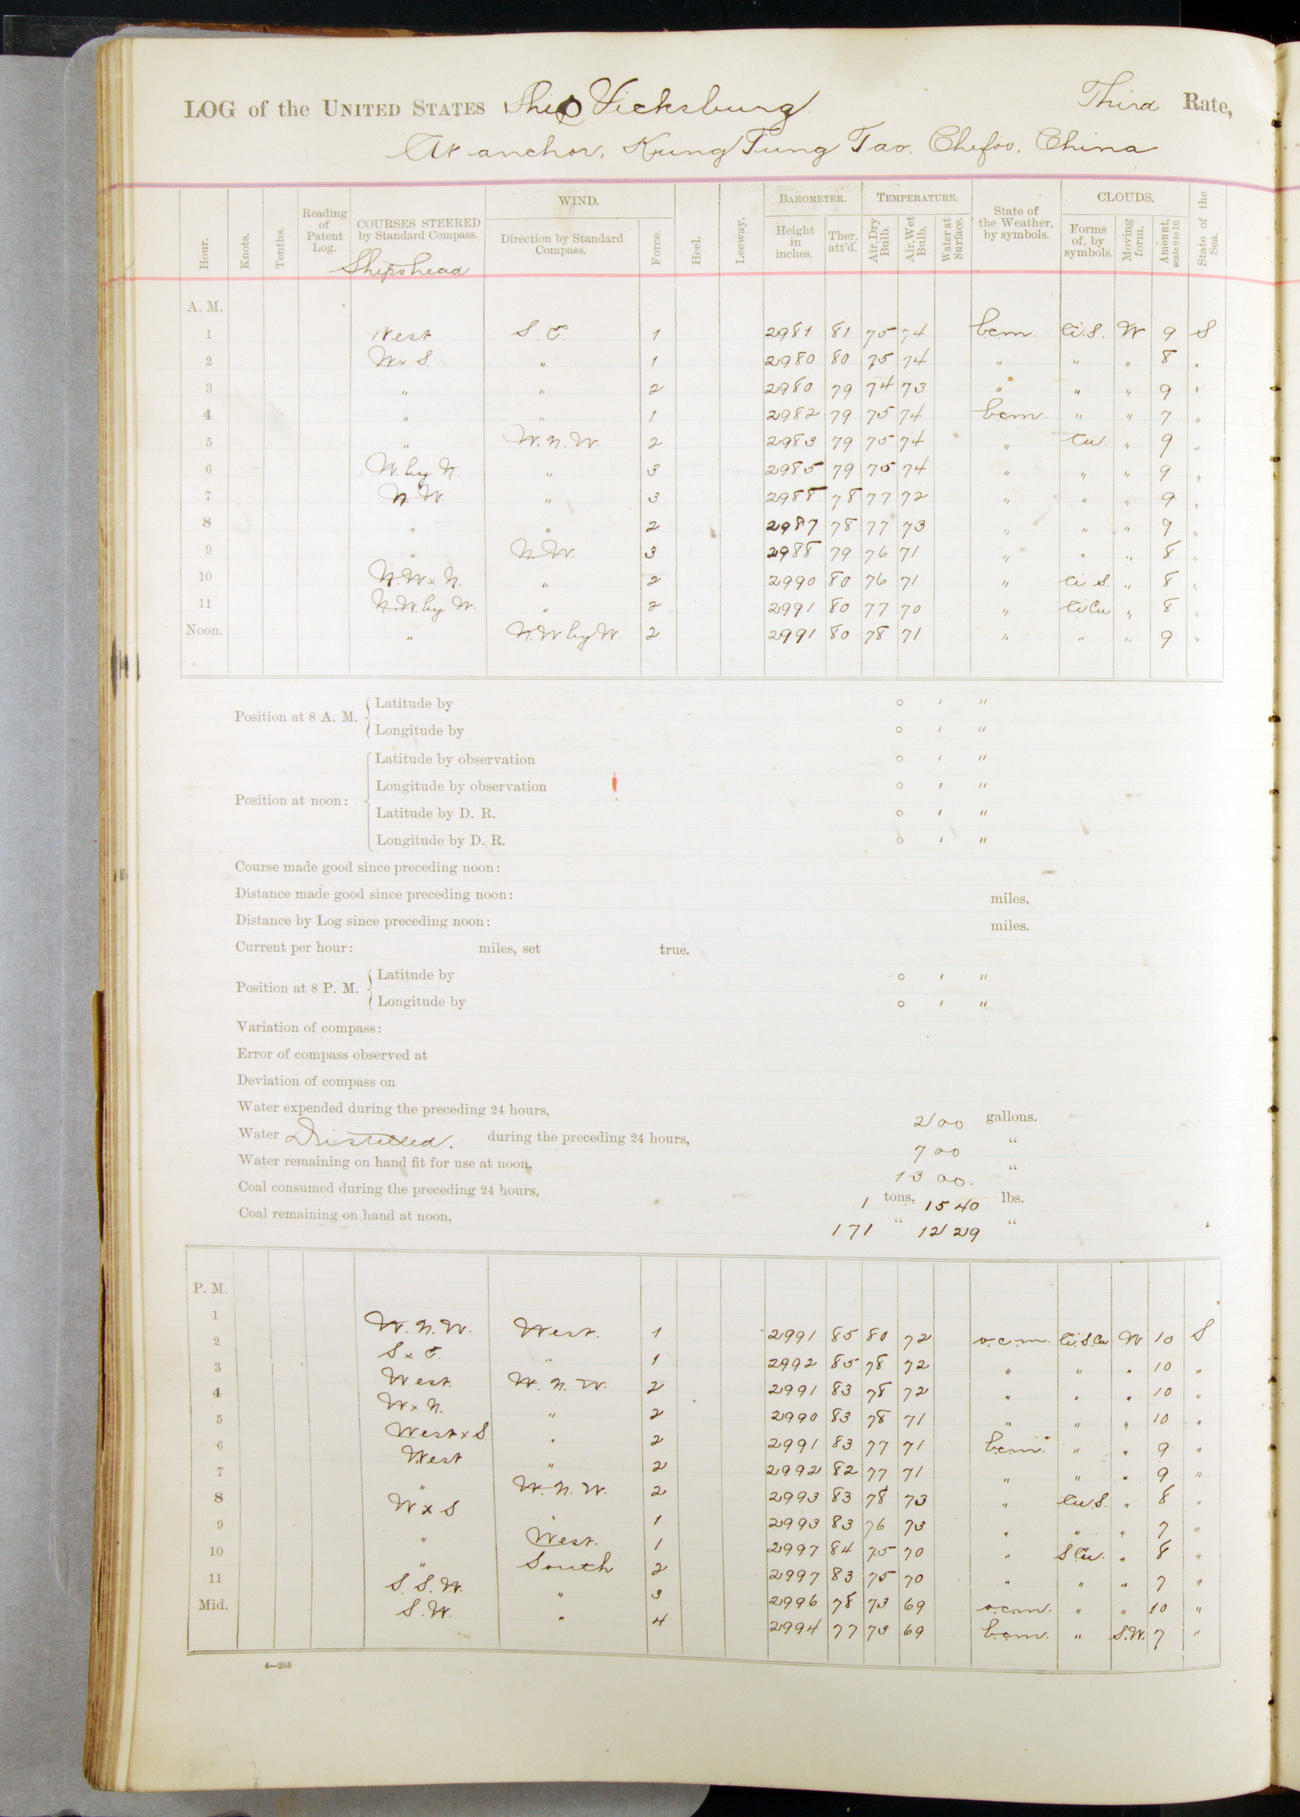 LOG of the UNITED STATES Ship Vicksburg Third Rate,
At anchor, Kung Tung Tao. Chefoo. China
Hour. Knots. Tenths. Reading of Patent Log. COURSES STEERED by Standard Compass. WIND. Direction by Standard Compass. Force. Heel. Leeway. BAROMETER. Height in inches. Ther. att'd. TEMPERATURE. Air, Dry Bulb. Air, Wet Bulb. Water at Surface. State of the Weather, by symbols. CLOUDS. Forms of, by symbols. Moving form. Amount, scale 0 to 10. State of the Sea.
Shipshead
A. M.
1 West S. E. 1 2981 81 75 74 bcm. Ci.S. W 9 S
2 W x S. " 1 2980 80 75 74 " " " 8 "
3 " " 2 2980 79 74 73 " " " 9 "
4 " " 1 2982 79 75 74 bcm. " " 7 "
5 " W.N.W. 2 2983 79 75 74 " Cu. " 9 "
6 W. by N. " 3 2985 79 75 74 " " " 9 "
7 N.W. " 3 2988 78 77 72 " " " 9 "
8 " " 2 2987 78 77 73 " " " 9 "
9 " N.W. 3 2988 79 76 71 " " " 8 "
10 N.W x N. " 2 2990 80 76 71 " Ci S. " 8 "
11 N.W. by W. " 2 2991 80 77 70 " Ci Cu " 8 "
Noon. " N.W by W. 2 2991 80 78 71 " " " 9 "
Position at 8 A. M. Latitude by ° ' "
Longitude by ° ' "
Position at noon: Latitude by observation ° ' "
Longitude by observation ° ' "
Latitude by D. R. ° ' "
Longitude by D. R. ° ' "
Course made good since preceding noon:
Distance made good since preceding noon: miles.
Distance by Log since preceding noon: miles.
Current per hour: miles, set true.
Position at 8 P. M. Latitude by ° ' "
Longitude by ° ' "
Variation of compass:
Error of compass observed at
Deviation of compass on
Water expended during the preceding 24 hours, 200 gallons.
Water Distilled. during the preceding 24 hours, 700 "
Water remaining on hand fit for use at noon, 1300. "
Coal consumed during the preceding 24 hours, 1 tons, 1540 lbs.
Coal remaining on hand at noon, 171 " 1229 "
P. M.
1 W.N.W. West. 1 2991 85 80 72 o.c.m. Ci.S.Cu W 10 S
2 S x E. " 1 2992 85 78 72 " " " 10 "
3 West. W.N.W. 2 2991 83 78 72 " " " 10 "
4 W x N. " 2 2990 83 78 71 " " " 10 "
5 West x S " 2 2991 83 77 71 bcm. " " 9 "
6 West " 2 2992 82 77 71 " " " 9 "
7 " W.N.W. 2 2993 83 78 73 " Cu S. " 8 "
8 W x S " 1 2993 83 76 73 " " " 7 "
9 " West. 1 2997 84 75 70 " S Cu. " 8 "
10 " South 2 2997 83 75 70 " " " 7 "
11 S.S.W. " 3 2996 78 73 69 o.c.m. " " 10 "
Mid. S.W. " 4 2994 77 73 69 b.c.m. " S.W. 7 "
4—265